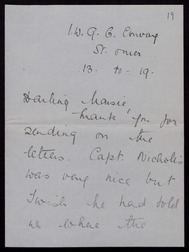 19
I.W.G.C. Convoy
St. Omer
13. 10. 19.
Darling Maisie
thank you for
sending on the
letters. Capt. Nicholls
was very nice but
I wish he had told
me where the